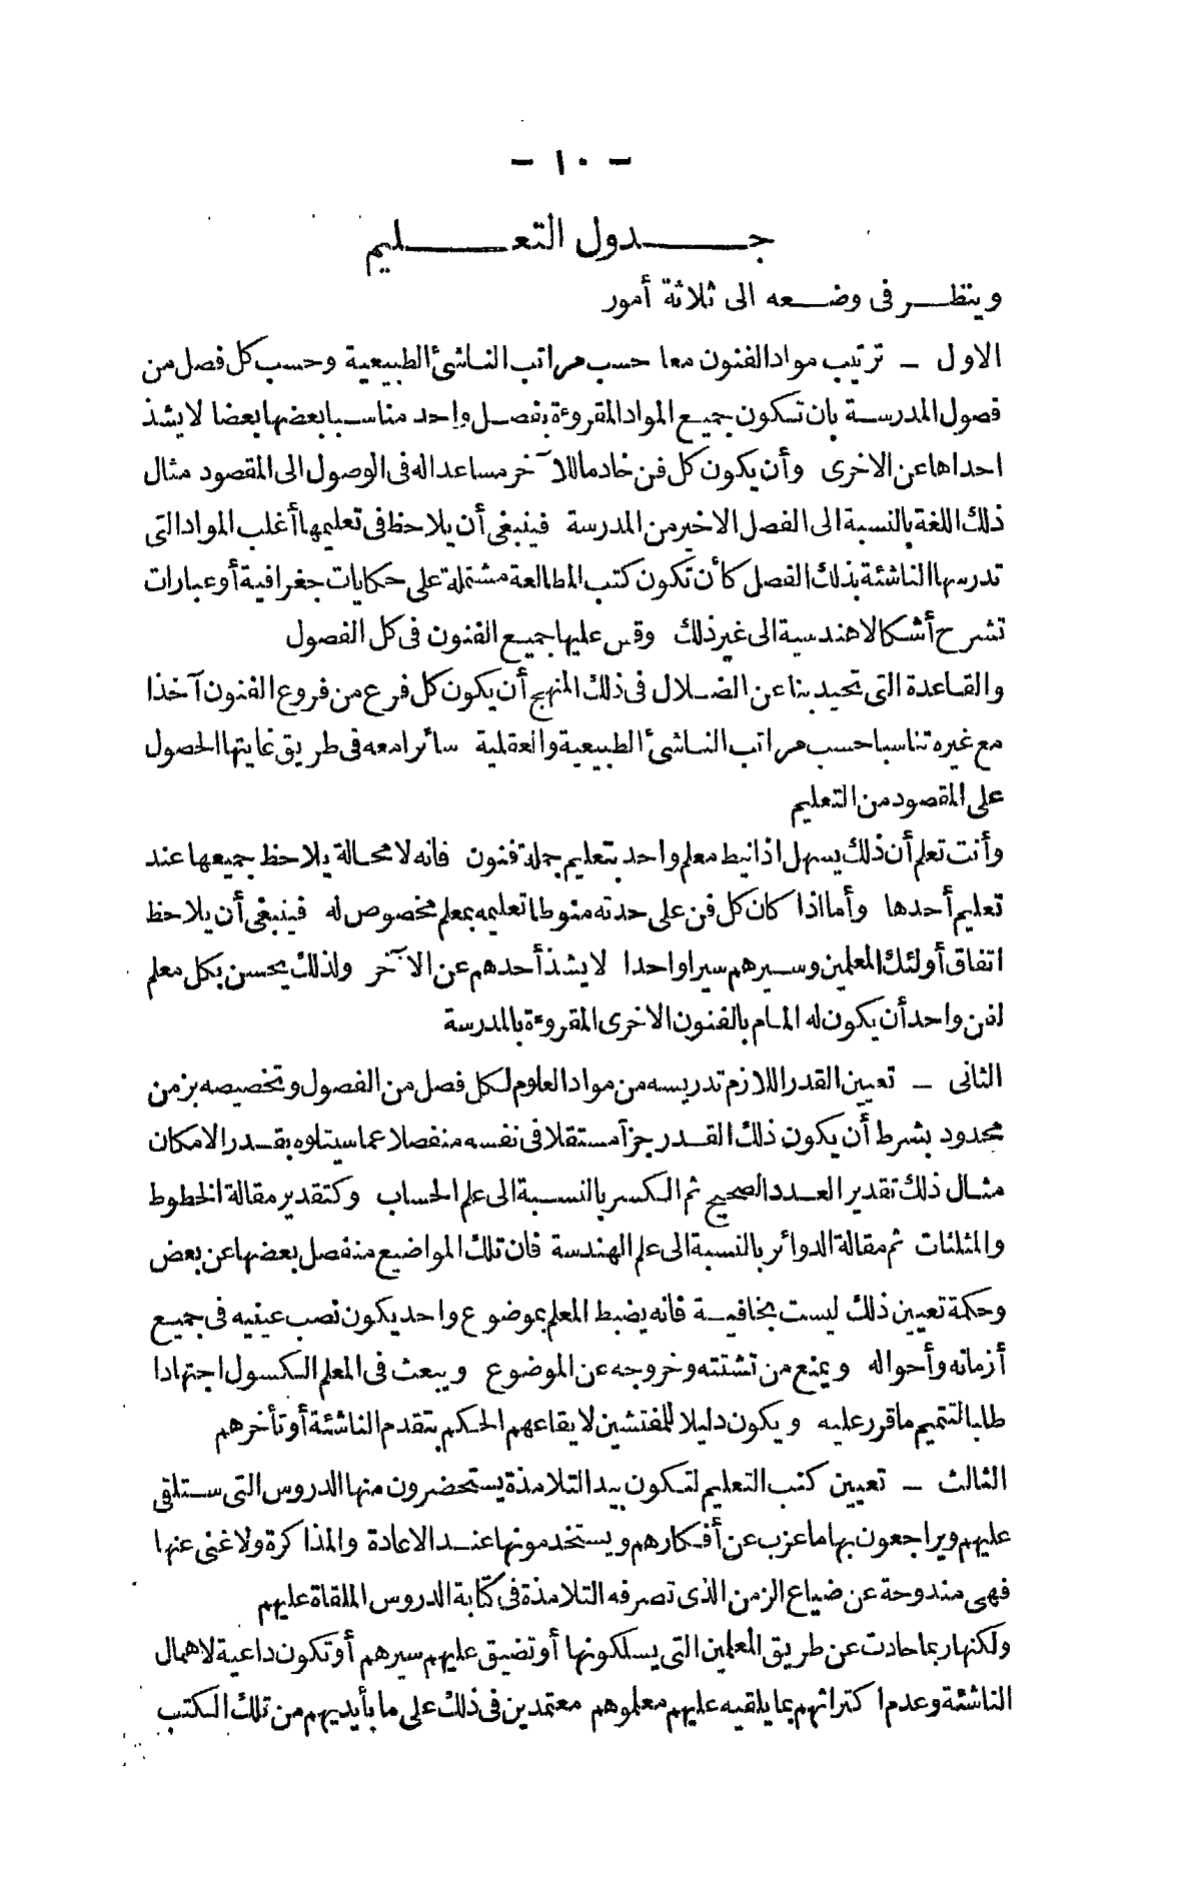 - ١٠ -
جدول التعليم
وينظر فى وضعه الى ثلاثة أمور
الاول - ترتيب مواد الفنون معا حسب مراتب الناشئ الطبيعية وحسب كل فصل من
فصول المدرسة بان تكون جميع المواد المقروءة بفصل واحد مناسبا بعضها بعضا لا يشذ
احداها عن الاخرى وأن يكون كل فن خادما للآخر مساعدا له فى الوصول الى المقصود مثال
ذلك اللغة بالنسبة الى الفصل الاخير من المدرسة فينبغى أن يلاحظ فى تعليمها أغلب المواد التى
تدرسها الناشئة بذلك الفصل كأن تكون كتب المطالعة مشتملة على حكايات جغرافية أو عبارات
تشرح أشكالا هندسية الى غير ذلك وقس عليها جميع الفنون فى كل الفصول
والقاعدة التى تحيد بنا عن الضلال فى ذلك المنهج أن يكون كل فرع من فروع الفنون آخذا
مع غيره تناسبا حسب مراتب الناشئ الطبيعية والعقلية سائرا معه فى طريق غايتها الحصول
على المقصود من التعليم
وأنت تعلم أن ذلك يسهل اذا نيط معلم واحد بتعليم جملة فنون فانه لا محالة يلاحظ جميعها عند
تعليم أحدها وأما اذا كان كل فن على حدته منوطا تعليمه بمعلم مخصوص له فينبغى أن يلاحظ
اتفاق أولئك المعلمين وسيرهم سيرا واحدا لا يشذ أحدهم عن الآخر ولذلك يحسن بكل معلم
لفن واحد أن يكون له المام بالفنون الاخرى المقروءة بالمدرسة
الثانى - تعيين القدر اللازم تدريسه من مواد العلوم لكل فصل من الفصول وتخصيصه بزمن
محدود بشرط أن يكون ذلك القدر جزآ مستقلا فى نفسه منفصلا عما سيتلوه بقدر الامكان
مثال ذلك تقدير العدد الصحيح ثم الكسر بالنسبة الى علم الحساب وكتقدير مقالة الخطوط
والمثلثات ثم مقالة الدوائر بالنسبة الى علم الهندسة فان تلك المواضيع منفصل بعضها عن بعض
وحكمة تعيين ذلك ليست بخافية فانه يضبط المعلم بموضوع واحد يكون نصب عينيه فى جميع
أزمانه وأحواله ويمنع من تشتته وخروجه عن الموضوع ويبعث فى المعلم الكسول اجتهادا
طلبا لتتميم ما قرر عليه ويكون دليلا للمفتشين لايقاعهم الحكم بتقدم الناشئة أو تأخرهم
الثالث - تعيين كتب التعليم لتكون بيد التلامذة يستحضرون منها الدروس التى ستلقى
عليهم ويراجعون بها ما عزب عن أفكارهم ويستخدمونها عند الاعادة والمذاكرة ولا غنى عنها
فهى مندوحة عن ضياع الزمن الذى تصرفه التلامذة فى كتابة الدروس الملقاة عليهم
ولكنها ربما حادت عن طريق المعلمين التى يسلكونها أو تضيق عليهم سيرهم أو تكون داعية لاهمال
الناشئة وعدم اكتراثهم بما يلقيه عليهم معلموهم معتمدين فى ذلك على ما بأيديهم من تلك الكتب